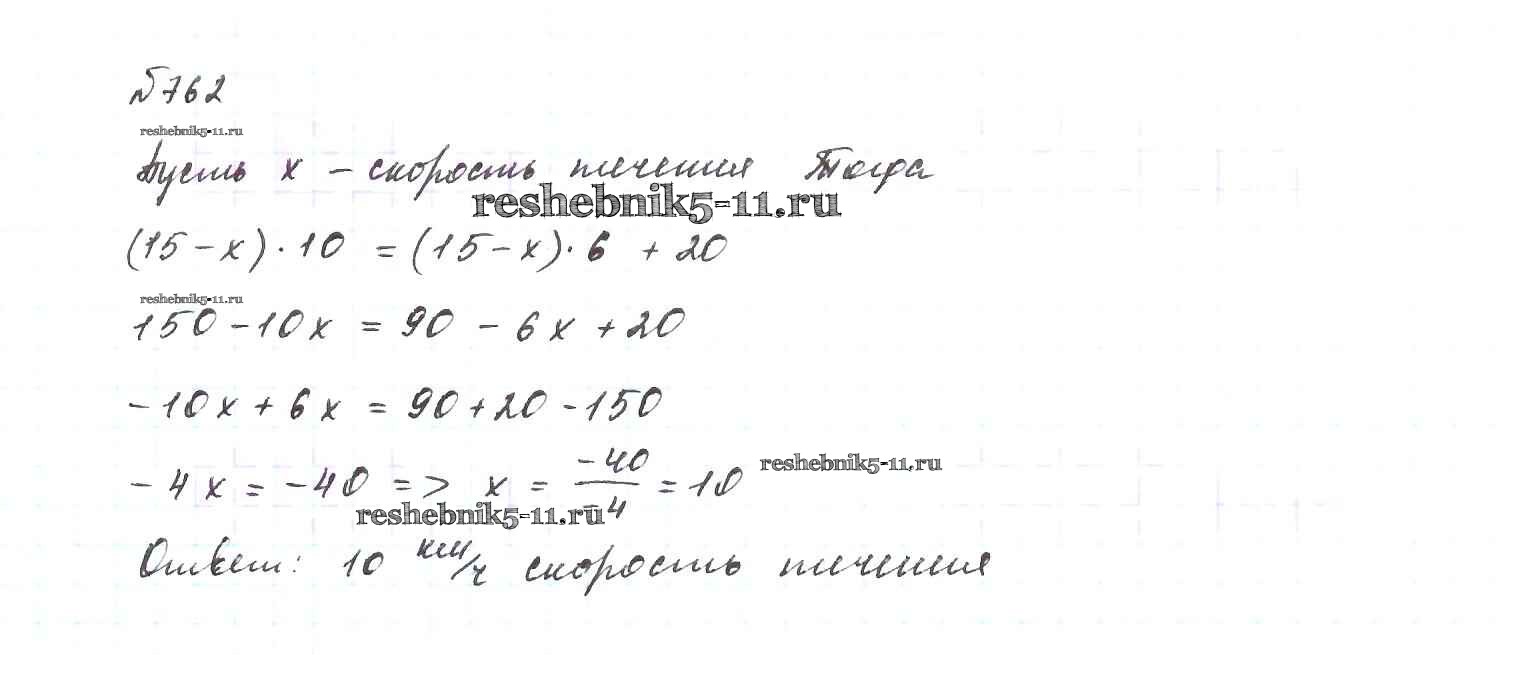 №762
reshebnik5-11.ru
Пусть x – скорость течения Тогда
reshebnik5-11.ru
(15-x)·10 = (15-x)·6 +20
reshebnik5-11.ru
150-10x = 90 - 6x +20
-10x+6x = 90+20-150
-4x = -40 => x = -40/-4 = 10 reshebnik5-11.ru
reshebnik5-11.ru
Ответ: 10 км/ч скорость течения